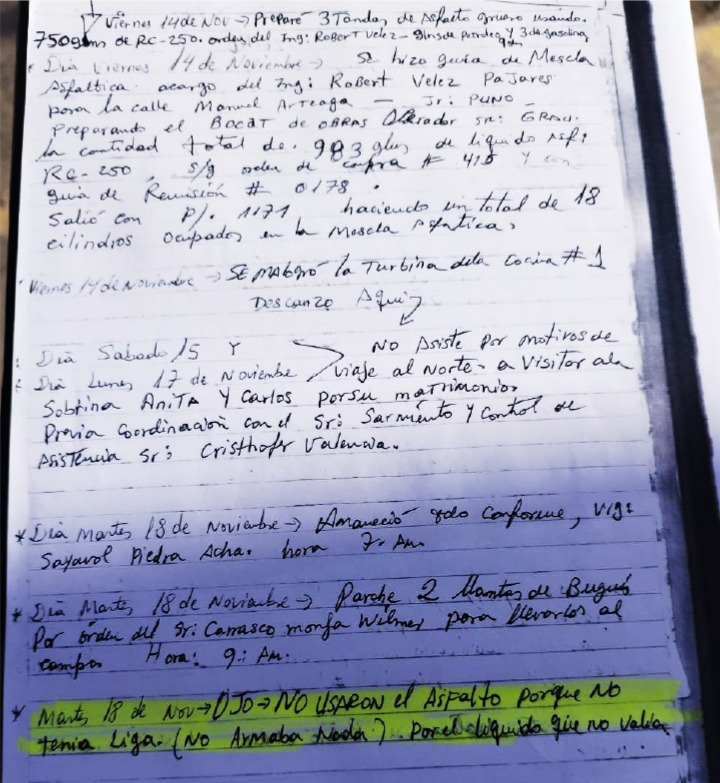 Viernes 14 de Nov → Preparé 3 Tandas de Asfalto grueso usando.
750 glns de RC-250. orden del Ing: Robert Velez - y 3 de gasolina
* Dia Viernes 14 de Noviembre → Se hizo guia de Mescla
Asfaltica acargo del Ing: Robert Velez Pajares
para la calle Manuel Arteaga — Jr: PUNO
Preparando el BOCAT de OBRAS Operador sr: GRAU.
la cantidad total de. 983 glns de liquido Asf:
RC-250. s/g orden de compra # 415 y con
guia de Remisión # 0178.
Salió con P/. 1171 haciendo un total de 18
cilindros ocupados en la Mescla Asfaltica.
* Viernes 14 de Noviembre → SE MALOGRÓ la Turbina dela Cocina # 1
Descanzo Aqui
: Dia Sabado 15 Y NO Asiste Por motivos de
: Dia Lunes 17 de Noviembre / viaje al Norte - a Visitar ala
Sobrina Anita Y Carlos por su matrimonio
Previa Coordinación con el Sr: Sarmiento Y Control de
Asistencia Sr: Cristhofer Valencia.
* Dia Martes 18 de Noviembre → Amaneció todo Conforme, Vig:
Piedra Acha. hora 7. Am
* Dia Martes 18 de Noviembre → Parché 2 llantas de Buguis
Por orden del Sr: Carrasco monja Wilmer para llevarlos al
campo Hora: 9: Am.
* Martes 18 de Nov → OJO → NO USARON el Asfalto Porque NO
tenia Liga. (No Armaba Nada) Por el liquido que no valia